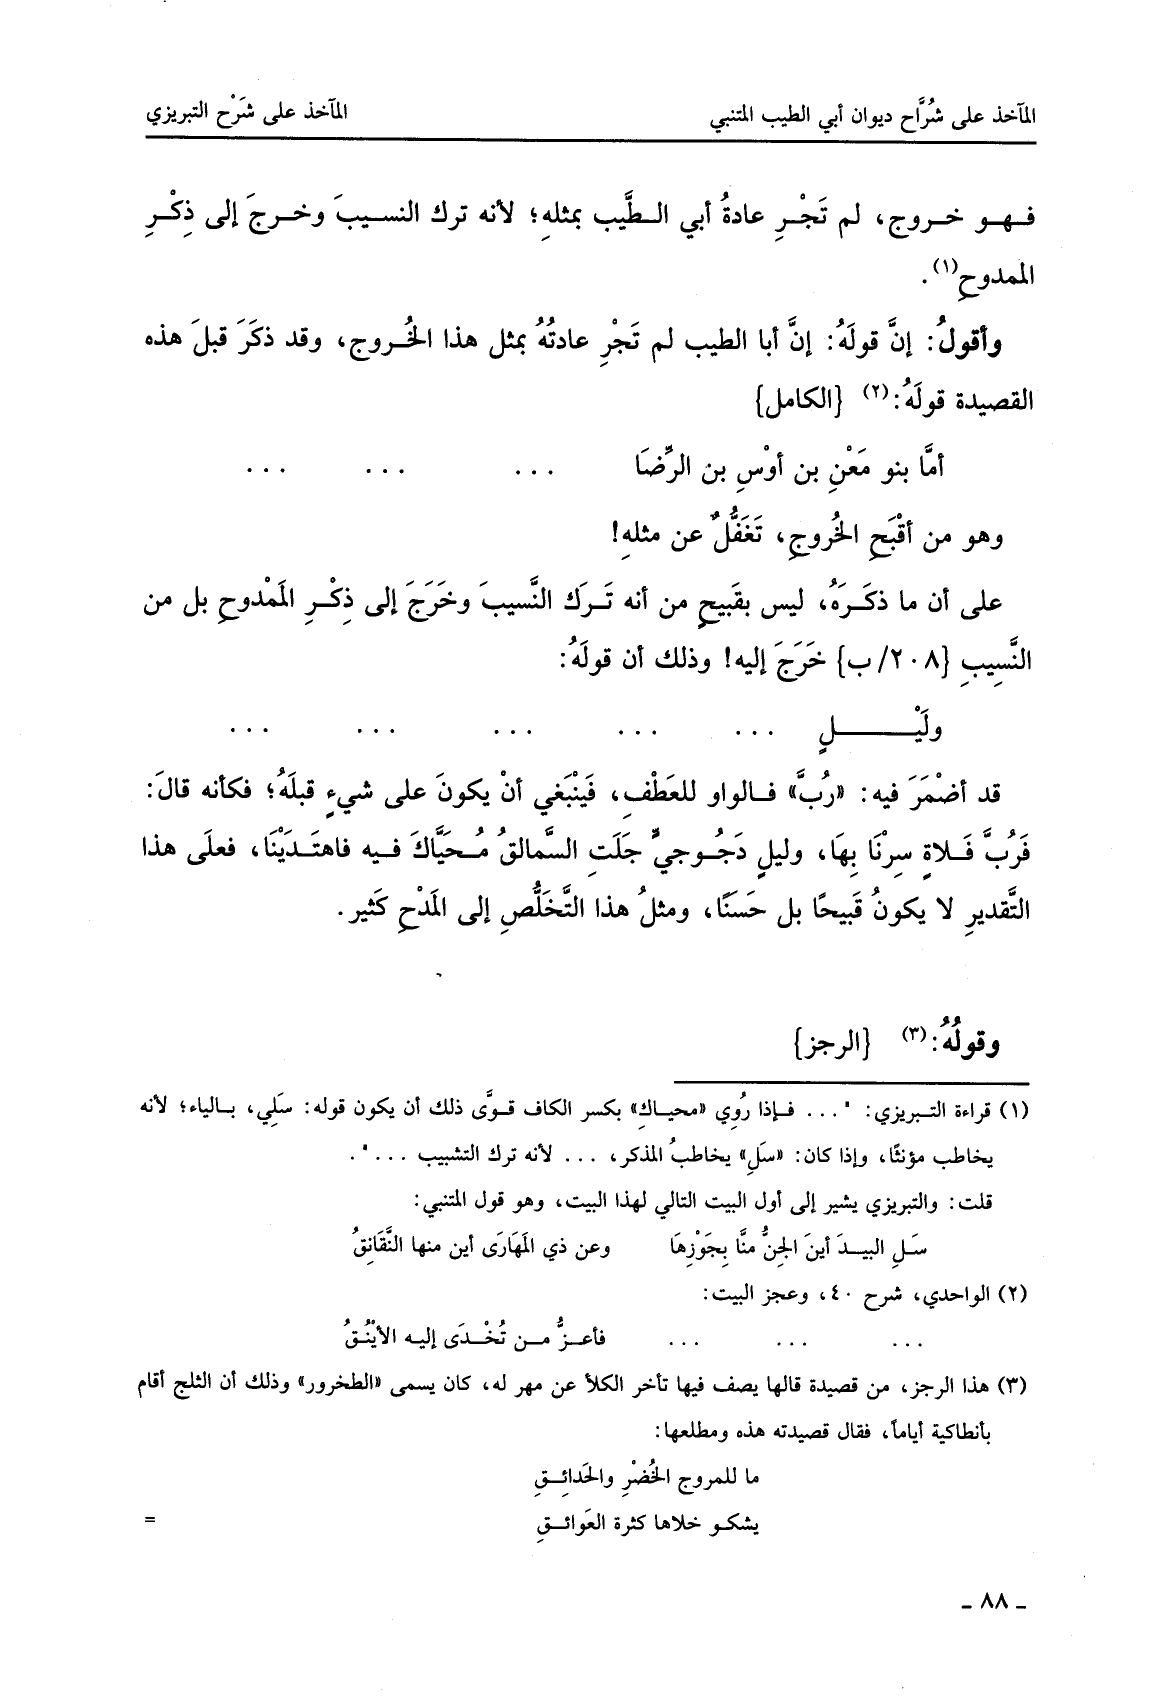 المآخذ على شُرَّاح ديوان أبي الطيب المتنبي
المآخذ على شَرْح التبريزي
فهو خروج، لم تَجْرِ عادةُ أبي الطَّيب بمثلهِ؛ لأنه ترك النسيبَ وخرجَ إلى ذِكْرِ
الممدوحِ(١).
وأقولُ: إنَّ قولَهُ: إنَّ أبا الطيب لم تَجْرِ عادتُهُ بمثل هذا الخُروج، وقد ذكَرَ قبلَ هذه
القصيدة قولَهُ:(٢) {الكامل}
أمَّا بنو مَعْنِ بن أوْسِ بن الرِّضَا ... ... ...
وهو من أقْبَحِ الخُروجِ، تَغَفُّلٌ عن مثلهِ!
على أن ما ذكَرَهُ، ليس بقَبيحٍ من أنه تَرَك النَّسيبَ وخَرَجَ إلى ذِكْرِ المَمْدوحِ بل من
النَّسِيبِ {٢٠٨/ب} خَرَجَ إليه! وذلك أن قولَهُ:
ولَيْلٍ ... ... ... ... ...
قد أضْمَرَ فيه: «رُبَّ» فالواو للعَطْفِ، فَيَنْبَغي أنْ يكونَ على شيءٍ قبلَهُ؛ فكأنه قالَ:
فَرُبَّ فَلاةٍ سِرْنَا بِهَا، وليلٍ دَجُوجيٍّ جَلَتِ السَّمالقُ مُحَيَّاكَ فيه فاهتَدَيْنَا، فعلَى هذا
التَّقديرِ لا يكونُ قَبيحًا بل حَسَنًا، ومثلُ هذا التَّخَلُّصِ إلى المَدْحِ كَثير.
وقولُهُ:(٣) {الرجز}
(١) قراءة التبريزي: "... فإذا رُوي «محياكِ» بكسر الكاف قوَّى ذلك أن يكون قوله: سَلِي، بالياء؛ لأنه
يخاطب مؤنثًا، وإذا كان: «سَلِ» يخاطبُ المذكر، ... لأنه ترك التشبيب ...".
قلت: والتبريزي يشير إلى أول البيت التالي لهذا البيت، وهو قول المتنبي:
سَلِ البيدَ أينَ الجنُّ منَّا بِجَوْزِهَا وعن ذي المَهَارَى أين منها النَّقَانِقُ
(٢) الواحدي، شرح ٤٠، وعجز البيت:
... ... ... فأعزُّ من تُحْدَى إليه الأيْنُقُ
(٣) هذا الرجز، من قصيدة قالها يصف فيها تأخر الكلأ عن مهر له، كان يسمى «الطخرور» وذلك أن الثلج أقام
بأنطاكية أياماً، فقال قصيدته هذه ومطلعها:
ما للمروج الخُضْرِ والحَدائِقِ
يشكو خلاها كثرة العَوائقِ
=
ـ ٨٨ ـ